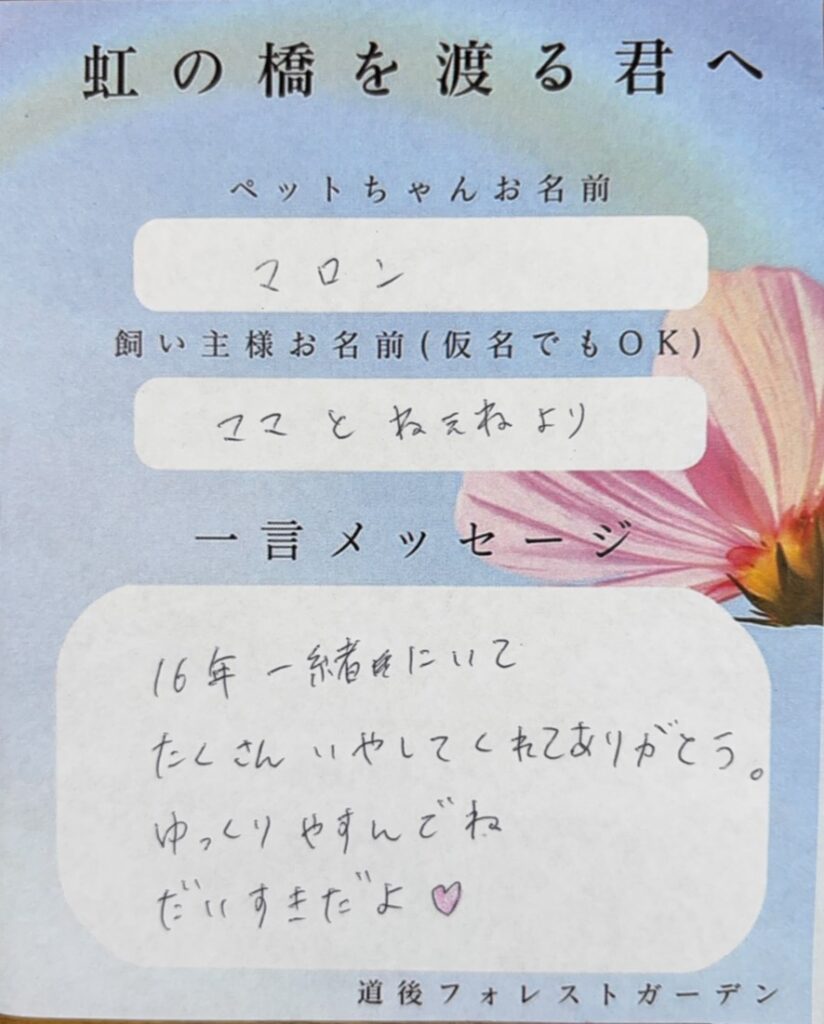 虹の橋を渡る君へ
ペットちゃんお名前
マロン
飼い主様お名前(仮名でもOK)
ママとねぇねより
一言メッセージ
16年一緒にいて
たくさんいやしてくれてありがとう。
ゆっくりやすんでね
だいすきだよ♡
道後フォレストガーデン